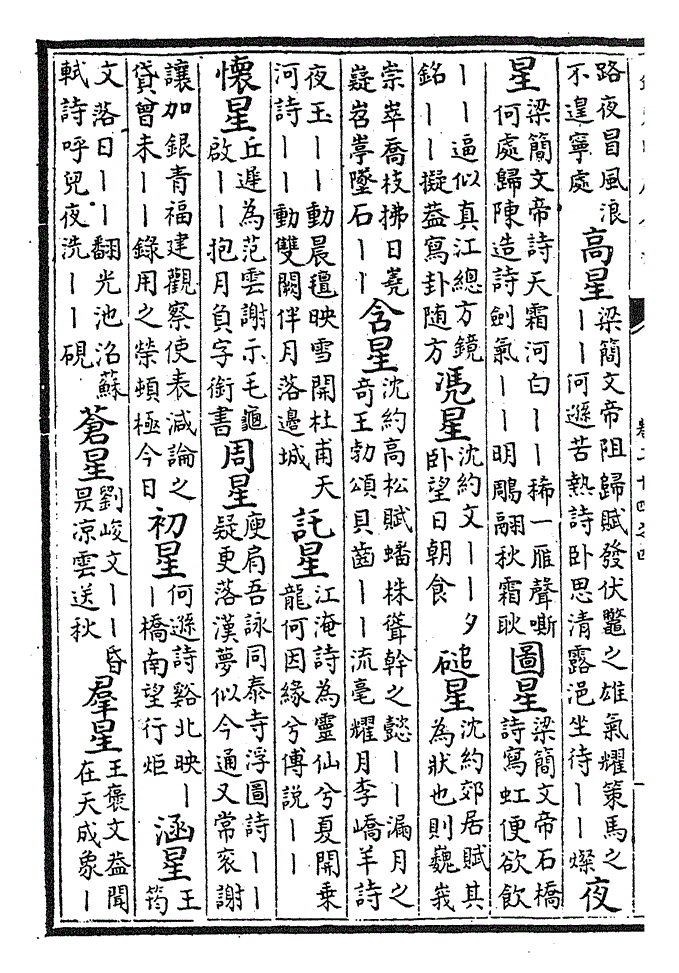 路夜冒風浪
不遑寧處
高星
梁簡文帝阻歸賦發伏鼈之雄氣耀策馬之
丨丨何遜苦熱詩卧思清露浥坐待丨丨燦
夜
星
梁簡文帝詩天霜河白丨丨稀一雁聲嘶
何處歸陳造詩劍氣丨丨明鵰翮秋霜耿
圖星
梁簡文帝石橋
詩寫虹便欲飲
丨丨逼似真江總方鏡
銘丨丨擬葢寫卦随方
凴星
沈約文丨丨夕
卧望日朝食
磓星
沈約郊居賦其
為狀也則巍峩
崇崒喬枝拂日嶤
嶷岧葶墜石丨丨
含星
沈約高松賦蟠株聳幹之懿丨丨漏月之
奇王勃頌貝齒丨丨流毫耀月李嶠羊詩
夜玉丨丨動晨氊映雪開杜甫天
河詩丨丨動雙闕伴月落邊城
託星
江淹詩為靈仙兮夏開乗
龍何因緣兮傅說丨丨
懷星
丘遲為范雲謝示毛龜
啟丨丨抱月負字銜書
周星
庾肩吾詠同泰寺浮圖詩丨丨
疑更落漢夢似今通又常衮謝
讓加銀青福建觀察使表減論之
貸曾未丨丨録用之榮頓極今日
初星
何遜詩谿北映丨
丨橋南望行炬
涵星
王
筠
文落日丨丨翻光池沼蘇
軾詩呼兒夜洗丨丨硯
蒼星
劉峻文丨丨昏
炅凉雲送秋
羣星
王褒文葢聞
在天成象丨